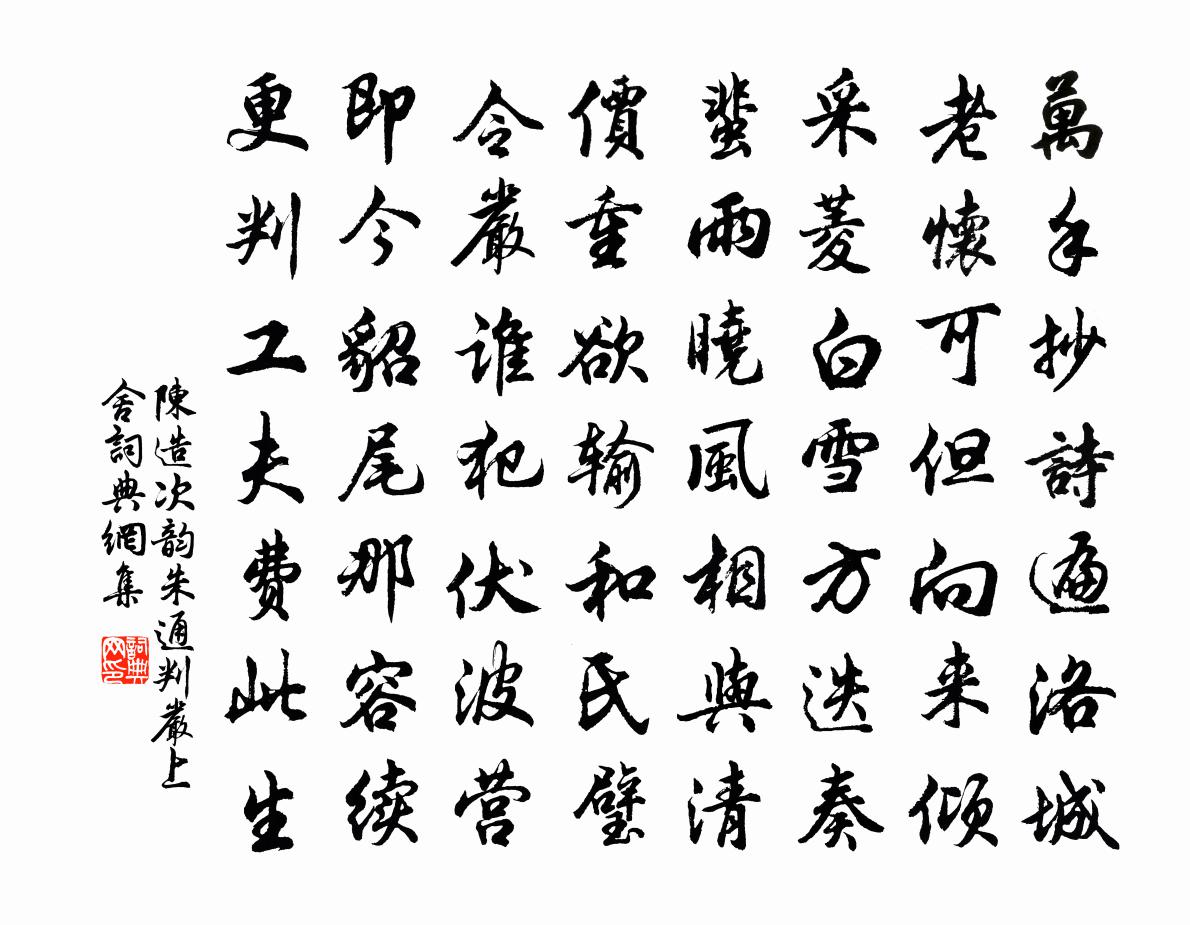 萬手抄詩遍洛城
老懷可但向来倾
采菱白雪方迭奏
蜚雨曉風相與清
價重欲輸和氏璧
令嚴誰犯伏波营
即今貂尾那容续
更判工夫費此生
陳造次韵朱通判嚴上
舍詞典網集
詞典网印